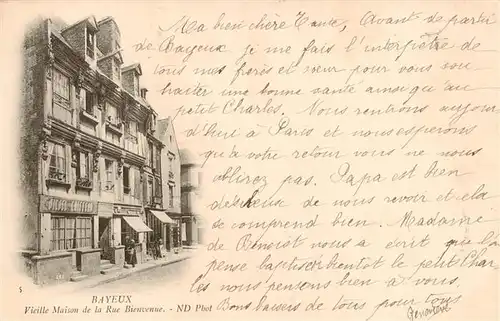 Ma bien chère Tante, Avant de partir
de Bayeux je me fais l'interprète de
tous mes frères et sœur pour vous sou-
haiter une bonne santé ainsi qu'au
petit Charles. Nous rentrons aujour-
d'hui à Paris et nous espérons
qu'à votre retour vous ne nous
oublirez pas. Papa est bien
désireux de nous revoir et cela
se comprend bien. Madame
de Benoist vous a écrit que l'on
pense baptiser bientôt le petit Char
les nous pensons bien à vous
Bons baisers de tous pour tous
5
BAYEUX
Vieille Maison de la Rue Bienvenue. - ND Phot